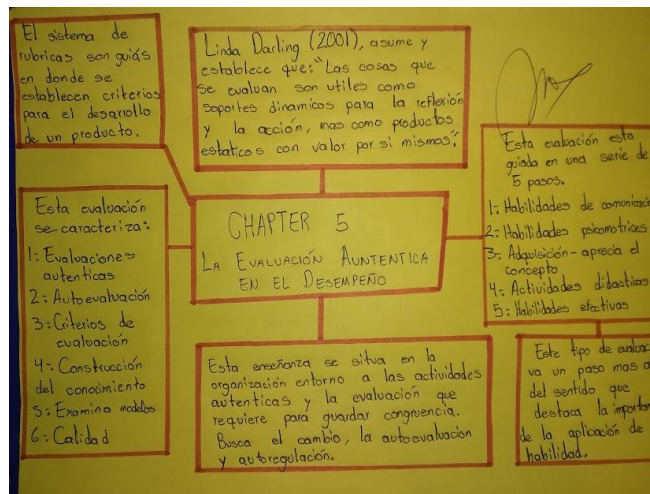 El sistema de
rubricas son guiás
en donde se
establecen criterios
para el desarrollo
de un producto.
Linda Darling (2001), asume y
establece que: "Las cosas que
se evaluan son utiles como
soportes dinamicos para la reflexión
y la acción, mas como productos
estaticos con valor por si mismos".
Esta evaluación esta
guiada en una serie de
5 pasos.
1: Habilidades de
2: Habilidades psicomotrices
3: Adquisición - aprecia el
concepto
4: Actividades didacticas
5: Habilidades efectivas
Esta evaluación
se caracteriza:
1: Evaluaciones
autenticas
2: Autoevaluación
3: Criterios de
evaluación
4: Construcción
del conocimiento
5: Examina modelos
6: Calidad
CHAPTER 5
LA EVALUACIÓN AUNTENTICA
EN EL DESEMPEÑO
Esta enseñanza se situa en la
organización entorno a las actividades
autenticas y la evaluación que
requiere para guardar congruencia.
Busca el cambio, la autoevaluación
y autoregulación.
Este tipo de
va un paso mas
del sentido que
destaca la
de la aplicación de
habilidad.